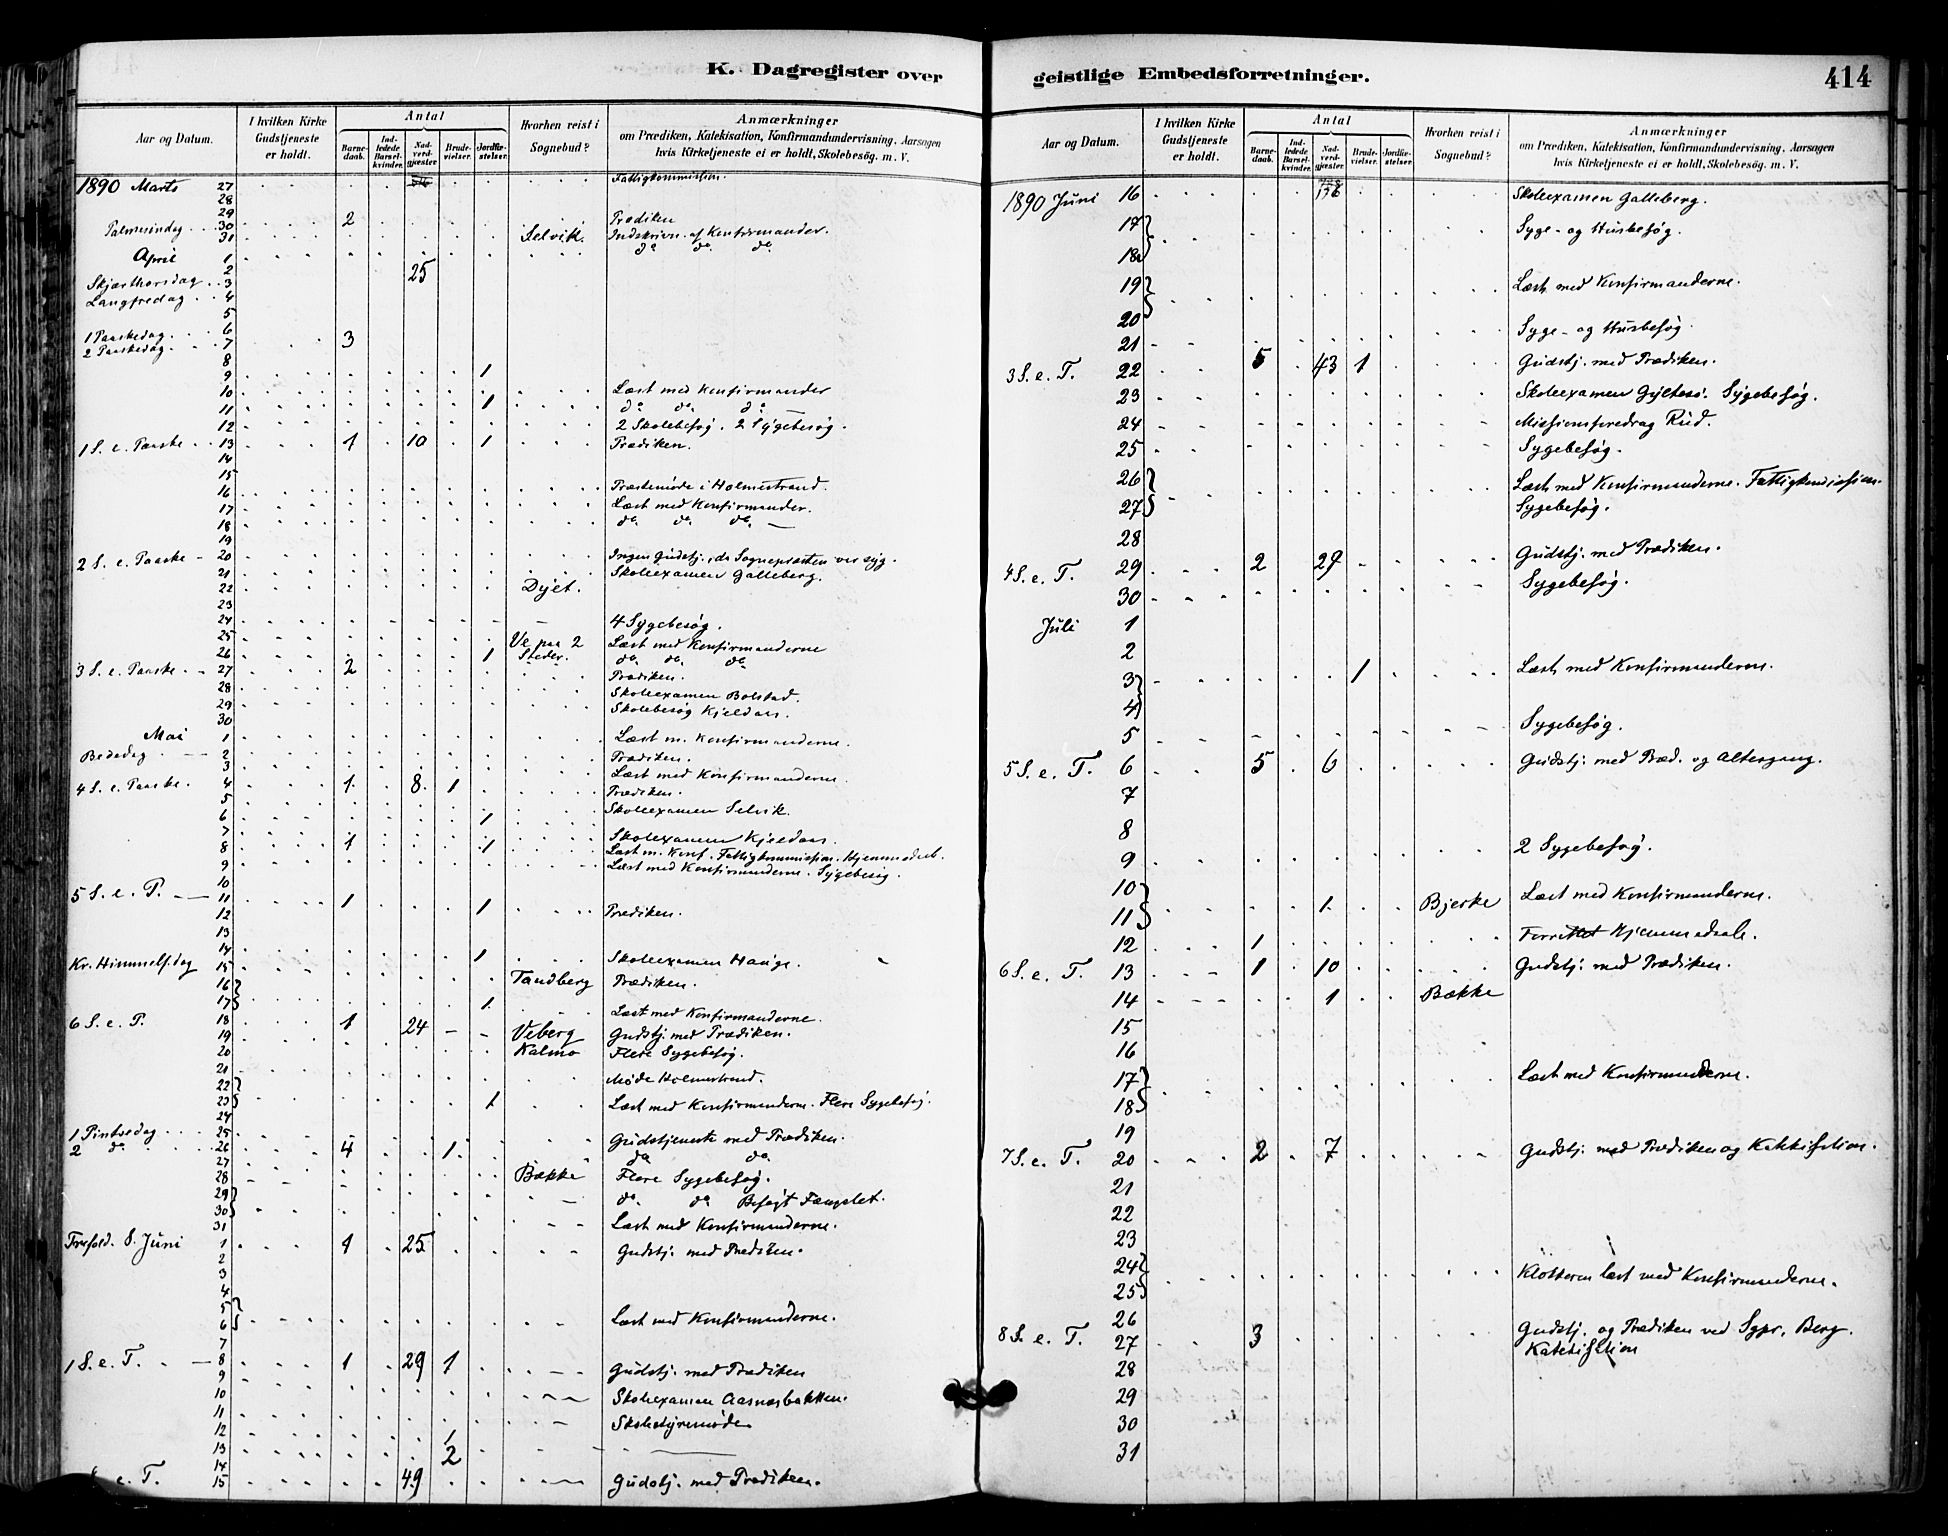 K. Dagregister over
Aar og Datum.
I hvilken Kirke Gudstjeneste er holdt.
Antal
Barnedaab.
Indledede Barselkvinder.
Nadverdgjester.
Brudevielser.
Jordfæstelser.
Hvorhen reist i Sognebud?
Anmærkninger
om Prædiken, Katekisation, Konfirmandundervisning, Aarsagen hvis Kirketjeneste ei er holdt, Skolebesög. m. V.
1890 Marts 27 Fattigkommission.
28
29
Palmesøndag 30 2 Prædiken
31 Selvik. Indskrivn. af Konfirmander.
April 1 do do do
2
Skjærthorsdag 3 25
Langfredag 4
5
1 Paaskedag 6
2 Paaskedag 7 3
8
9 1
10 Læst med Konfirmander
11 1 do do do
12 2 Skolebesøg. 2 Sygebesøg.
1 S. e. Paaske 13 1 10 1 Prædiken.
14
15
16 Præstemøde i Holmestrand.
17 Læst med Konfirmander.
18 do do do
19
2 S. e. Paaske 20 Ingen Gudstj., da Sognepræsten var syg.
21 Skoleexamen Galleberg.
22 Dyet.
23
24 4 Sygebesøg.
25 Ve paa 2 Læst med Konfirmanderne
26 1 Steder. do do do
3 S. e. Paaske 27 2 Prædiken.
28 Skoleexamen Bolstad.
29 Skolebesøg Kjeldaas.
30
Mai 1 Læst m. Konfirmanderne.
Bededag 2 Prædiken.
3 Læst med Konfirmanderne.
4 S. e. Paaske. 4 1 8 1 Prædiken.
5 Skoleexamen Selvik.
6 1
7 Skoleexamen Kjeldaas.
8 1 1 Læst m. Konf. Fattigkommission. Hjemmedaab.
9 Læst med Konfirmanderne. Sygebesøg.
10
5 S. e. P. 11 1 1 Prædiken.
12
13
14 1 Skoleexamen Hauge.
Kr. Himmelf.dag 15 Tandberg Prædiken.
16
17 1 Læst med Konfirmanderne.
6 S. e. P. 18 1 24 Veberg Gudstj. med Prædiken.
19 Kalmo Flere Sygebesøg.
20
21 Møde Holmestrand.
22
23 1 Læst med Konfirmanderne. Flere Sygebesøg.
24
1 Pintsedag 25 Gudstjeneste med Prædiken.
2 do 26 4 1 do do
27 Bække Flere Sygebesøg.
28 do do Besøgt Fængslet.
29
30 Læst med Konfirmanderne.
31
Trefold. S. Juni 1 1 25 Gudstj. med Prædiken.
2
3
4
5
6 Læst med Konfirmanderne.
7
1 S. e. T. 8 1 29 1 Gudstj. med Prædiken
9
10 Skoleexamen Aasnæsbakken.
11 Skolestyremøde
12
13 2
14
e. T. 15 49 Gudstj. med Prædiken.
geistlige Embedsforretninger.
414
Aar og Datum.
I hvilken Kirke Gudstjeneste er holdt.
Antal
Barnedaab.
Indledede Barselkvinder.
Nadverdgjester.
Brudevielser.
Jordfæstelser.
Hvorhen reist i Sognebud?
Anmærkninger
om Prædiken, Katekisation, Konfirmandundervisning, Aarsagen hvis Kirketjeneste ei er holdt, Skolebesög. m. V.
1890 Juni 16 Skoleexamen Galleberg.
17 Syge- og Husbesøg.
18
19 Læst med Konfirmanderne.
20 Syge- og Husbesøg.
21
3 S. e. T. 22 5 43 1 Gudstj. med Prædiken.
23 Skoleexamen Gyltesø. Sygebesøg.
24 Missionsforedrag Rud.
25 Sygebesøg.
26 Læst med Konfirmanderne. Fattigkommission.
27 Sygebesøg.
28
4 S. e. T. 29 2 27 Gudstj. med Prædiken.
30 Sygebesøg.
Juli 1
2
3 1 Læst med Konfirmanderne.
4
5 Sygebesøg.
5 S. e. T. 6 5 6 Gudstj. med Præd. og Altergang.
7
8
9 2 Sygebesøg.
10 Læst med Konfirmanderne.
11 1 Bjerke
12 1 Forrettet Hjemmedaab.
6 S. e. T. 13 1 10 Gudstj. med Prædiken.
14 1 Bække
15
16
17 Læst med Konfirmanderne.
18
19
7 S. e. T. 20 2 7 Gudstj. med Prædiken og Katekisation.
21
22
23
24 Klokkeren læst med Konfirmanderne.
25
26
8 S. e. T. 27 3 Gudstj. og Prædiken ved Sgpr. Berg. Katekisation
28
29
30
31